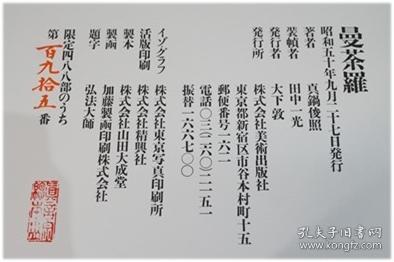 曼荼羅
昭和五十年九月二十七日発行
著者 真鍋俊照
装幀者 田中一光
発行者 大下敦
発行所 株式会社美術出版社
東京都新宿区市谷本村町十五
郵便番号一六二
電話〇三(二六〇)二一五一
振替一六六七〇〇
イゾグラフ 株式会社東京写真印刷所
活版印刷 株式会社精興社
製本 株式会社山田大成堂
製函 加藤製函印刷株式会社
題字 弘法大師
限定四八八部のうち
第百九拾五番
孔夫子旧书网
www.kongfz.com